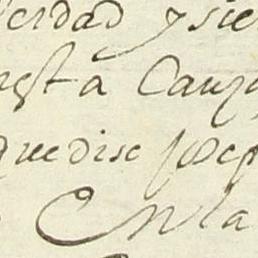 verdad y sie
est a Cauza
que dise Josep
En la